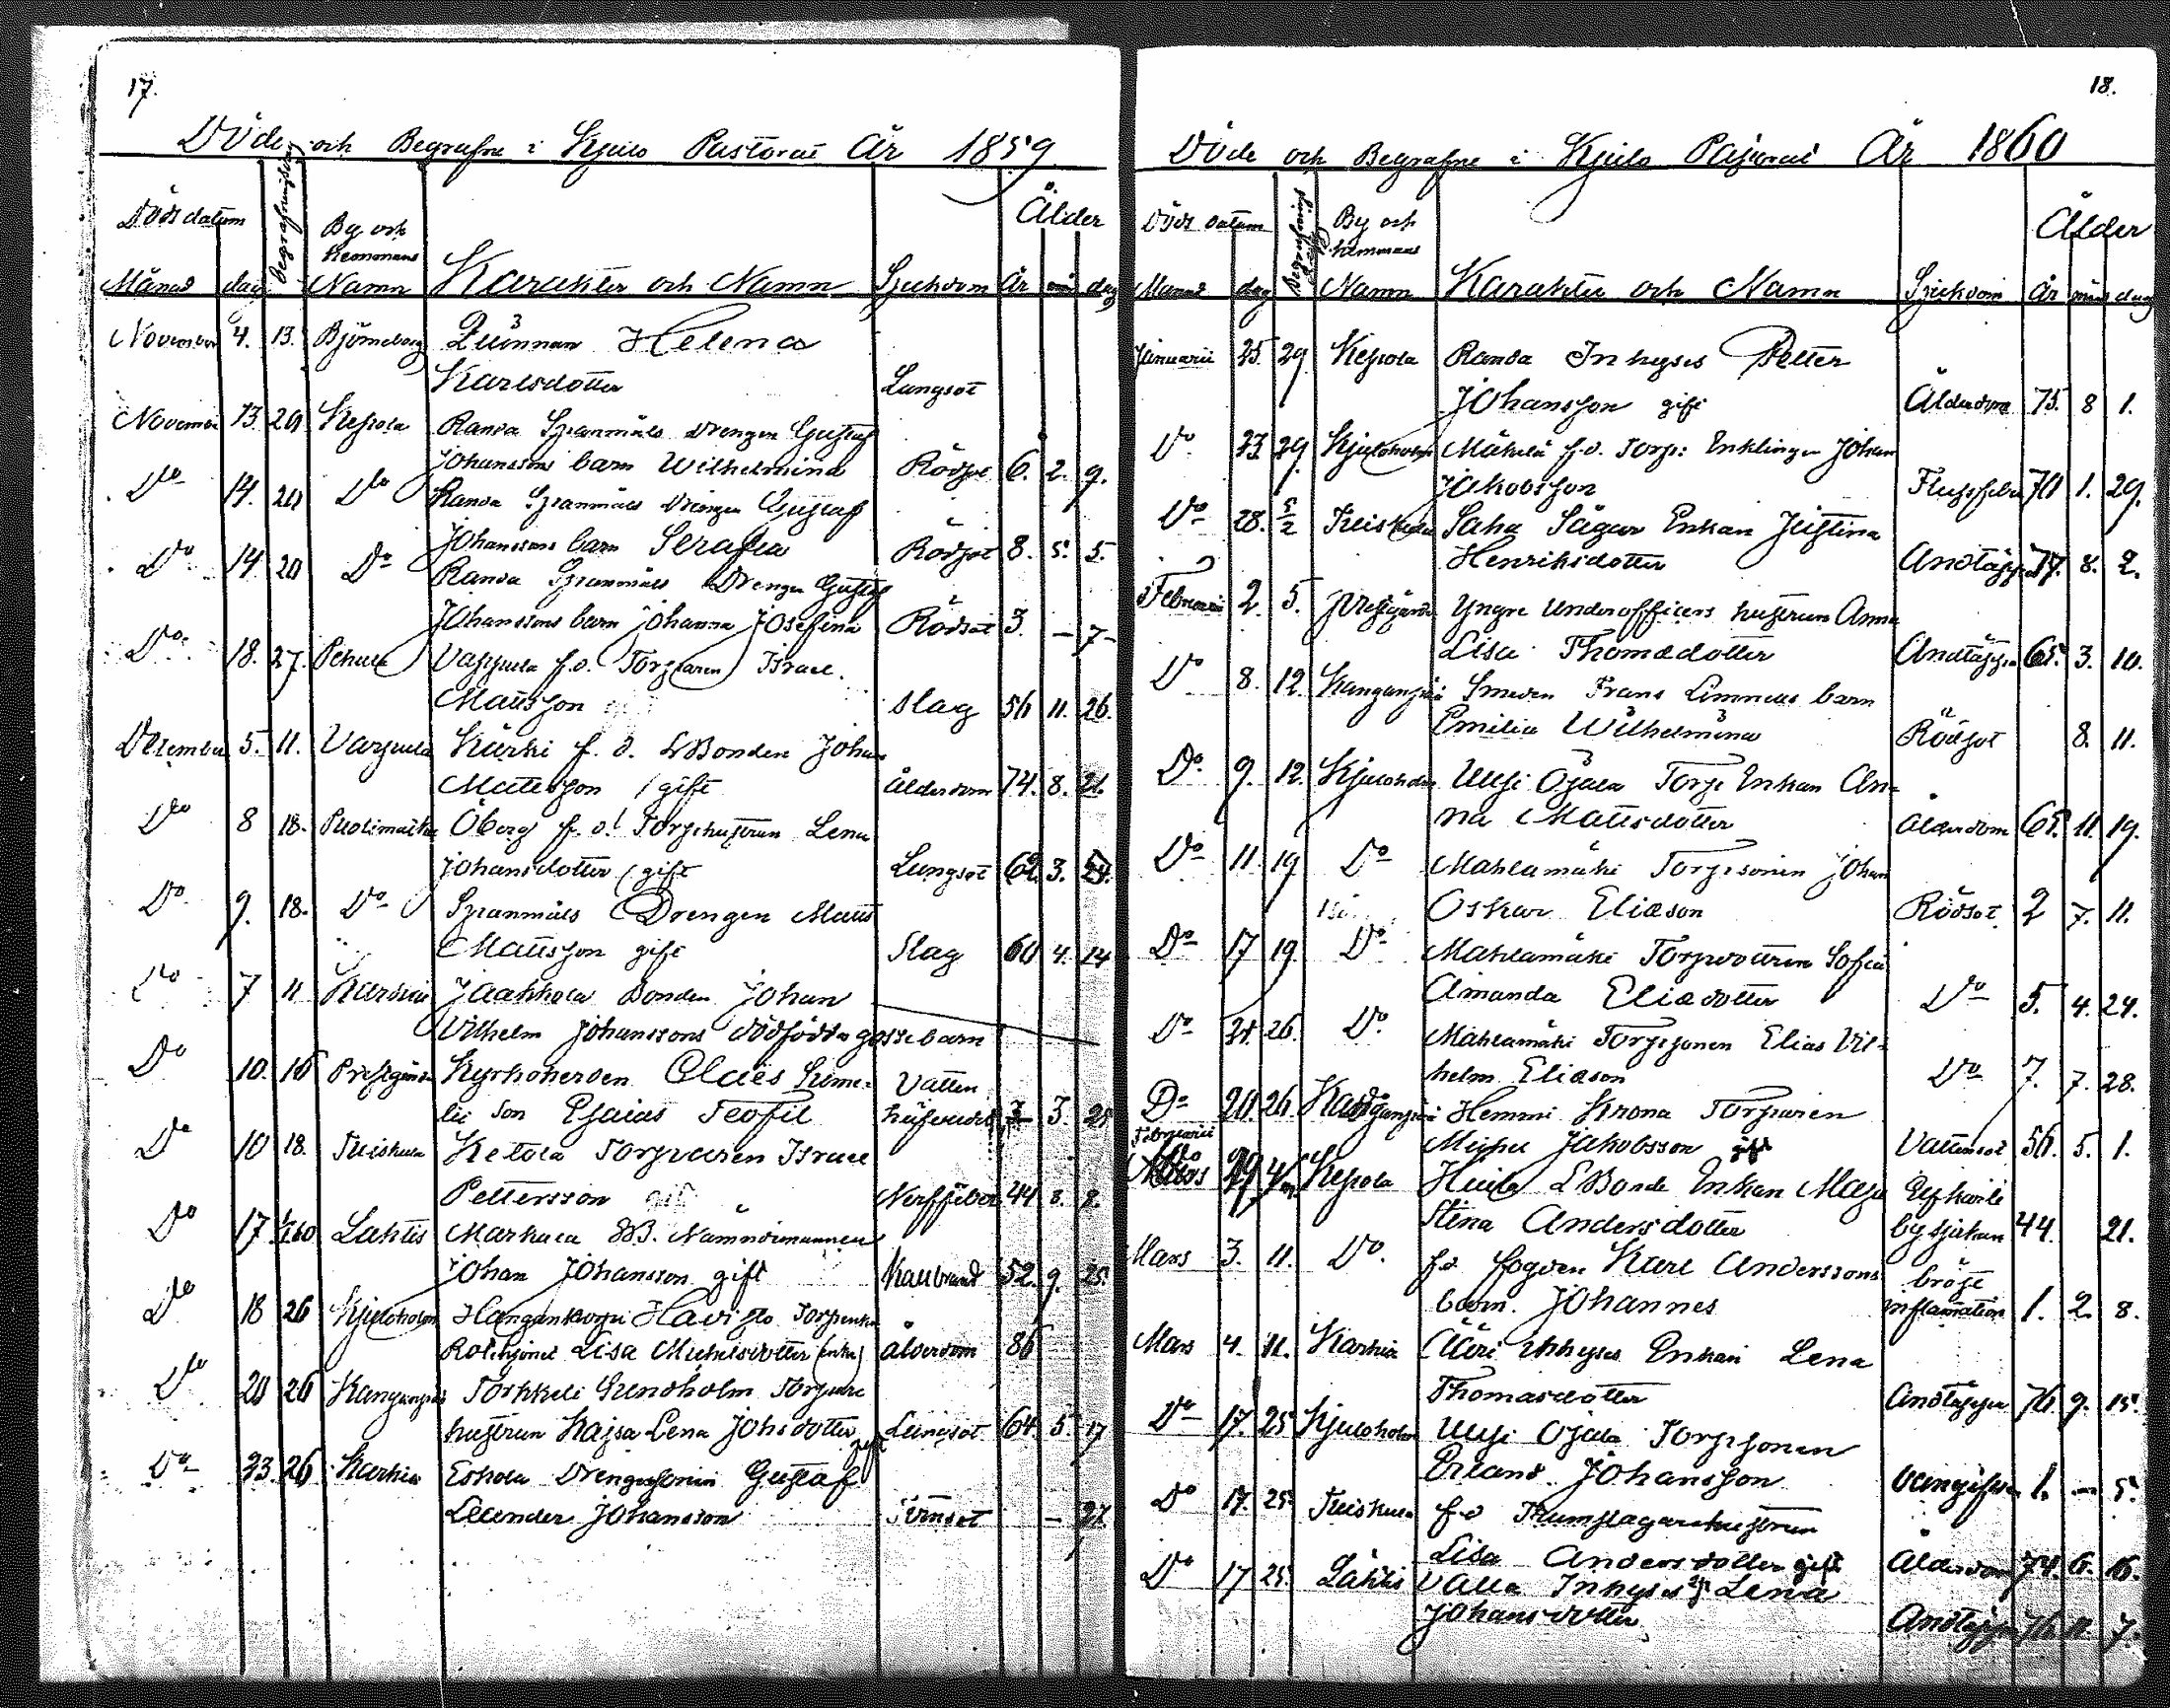 17.
Döde och Begrafne i Kjulo Pastorat År 1859
Döds datum
Begrafningsdag
By och Hemmans
Ålder
Månad dag Namn Karakter och Namn Sjukdom År mån dag
November 4. 13. Björneborg Qvinnan Helena
Karlsdotter Lungsot
November 13. 20 Kepola Randa Spanmåls Drengen Gustaf
Johanssons barn Wilhelmina Rödsot 6. 2. 9.
Do 14. 20 Do Randa Spanmåls Drengen Gustaf
Johanssons barn Serafia Rödsot 8. 5. 5.
Do 14 20 Do Randa Spanmåls Drengen Gustaf
Johanssons barn Johanna Josefina Rödsot 3 – 7
Do 18. 27. Pehula f.d. Torparen Israel
Mattsson slag 56 11. 26.
December 5. 11. Kärki f.d. Bonden Johan
Mattsson gift Ålderdom 74. 8. 21.
Do 8 18. Öberg f.d. Torphustrun Lena
Johansdotter gift Lungsot 62. 3. 24.
Do 9. 18. Do Spanmåls Drengen Matts
Mattsson gift Slag 60 4. 14
Do 7 11 Karhia Jaakkola Bonden Johan
Vilhelm Johanssons dödfödda gossebarn
Do 10. 16 Prestgården Kyrkoherden Claës
son Esaias Teofil Vatten 3 3. 25
Do 10 18. Ketola Torparen Israel
Pettersson gift Nerffeber 44 8. 8.
Do 17 1/1 60 Lahtis Markula Nämndemannen
Johan Johansson gift Kallbrand 52. 9. 25.
Do 18 26 Kjuloholm
Rotehjonet Lisa Michelsdotter (enka) Ålderdom 86
Do 20 26 Torkkeli Sundholm Torpare
hustrun Kajsa Lena Johsdotter gift Lungsot 64. 5. 17
Do 23. 26 Karhia Eskola Drengsonen Gustaf
Leander Johansson – 27.
18.
Döde och Begrafne i Kjulo Pastorat År 1860
Döds datum
Begrafnings dag
By och hemmans
Ålder
Månad dag Namn Karakter och Namn Sjukdom År mån dag
Januarii 25. 29 Kepola Randa Inhyses Petter
Johansson gift Ålderdom 75. 8 1.
Do 23 29 Kjuloholm Mäkelä f.d. Torp: Enklingen Johan
Jakobsson 70 1. 29.
Do 28. 5/2 Saha Enkan Justina
Henriksdotter Andtäppa 77. 8. 2.
Februarii 2. 5. Prestgården Yngre Underofficers hustrun Anna
Lisa Thomædotter Andtäppa 65. 3. 10.
Do 8. 12. Smeden Frans Linnæus barn
Emilia Wilhelmina Rödsot 8. 11.
Do 9. 12. Kjuloholm Uusi Ojala Torp Enkan An-
na Mattsdotter Ålderdom 65. 11. 19.
Do 11 19 Do Mahlamäki Torpsonen Johan
Oskar Eliæson Rödsot 2 7. 11.
Do 17 19 Do Mahlamäki Torpdottren Sofia
Amanda Eliædotter Do 5. 4. 24.
Do 21. 26. Do Mahlamäki Torpsonen Elias Vil-
helm Eliæson Do 7. 7. 28.
Do 20. 26. Hemmi Krona Torparen
Michel Jakobsson gift Vattensot 56. 5. 1.
Februarii 29 Kepola Huila Bonde Enkan Maja
Stina Andersdotter 44. 21.
Mars 3. 11. Do f.d. fogden Karl Anderssons bröst
barn Johannes inflamation 1. 2. 8.
Mars 4. 11. Karhia Inhyses Enkan Lena
Thomasdotter Andtäppa 76. 9. 15.
Do 17. 25 Kjuloholm Uusi Ojala Torpsonen
Erland Johansson 1. – 5.
Do 17. 25. f.d. Trumslagarehustrun
Lisa Andersdotter gift Ålderdom 74. 6. 16.
Do 17 25. Lahtis Inhyses Lena
Johansdotter Andtäppa 76 11. 7.